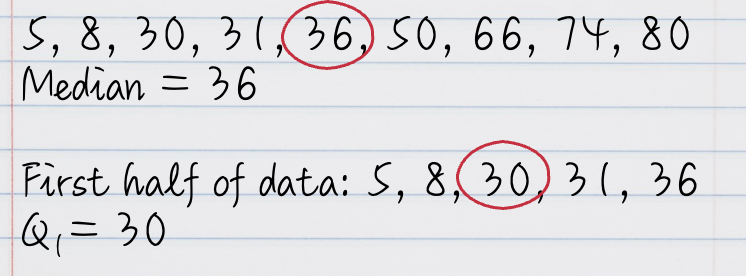 5, 8, 30, 31, 36, 50, 66, 74, 80
Median = 36
First half of data: 5, 8, 30, 31, 36
Q₁ = 30